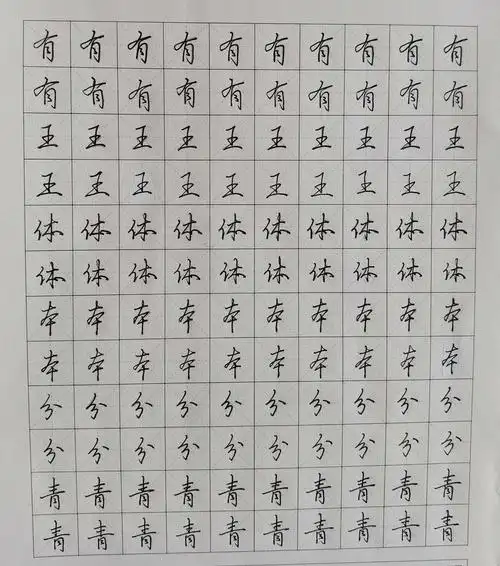 有有有有有有有有有有
有有有有有有有有有有
王王王王王王王王王王
王王王王王王王王王王
体体体体体体体体体体
体体体体体体体体体体
本本本本本本本本本本
本本本本本本本本本本
分分分分分分分分分分
分分分分分分分分分分
青青青青青青青青青青
青青青青青青青青青青